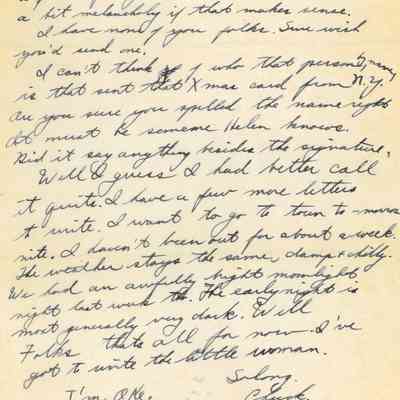 a bit melancholy if that makes sense.
I have none of you folks. Sure wish
you'd send one.
I can't think of who that person's name
is that sent that Xmas card from N.Y.
Are you sure you spelled the name right
It must be someone Helen knows.
Did it say anything besides the signature.
Well I guess I had better call
it quits. I have a few more letters
to write. I want to go to town to-morrow
nite. I haven't been out for about a week.
The weather stays the same, damp & chilly.
We had an awfully bright moonlight
night last week tho. The early night is
most generally very dark. Well
Folks thats all for now. I've
got to write the little woman.
So long.
I'm O.K.
Chuck.